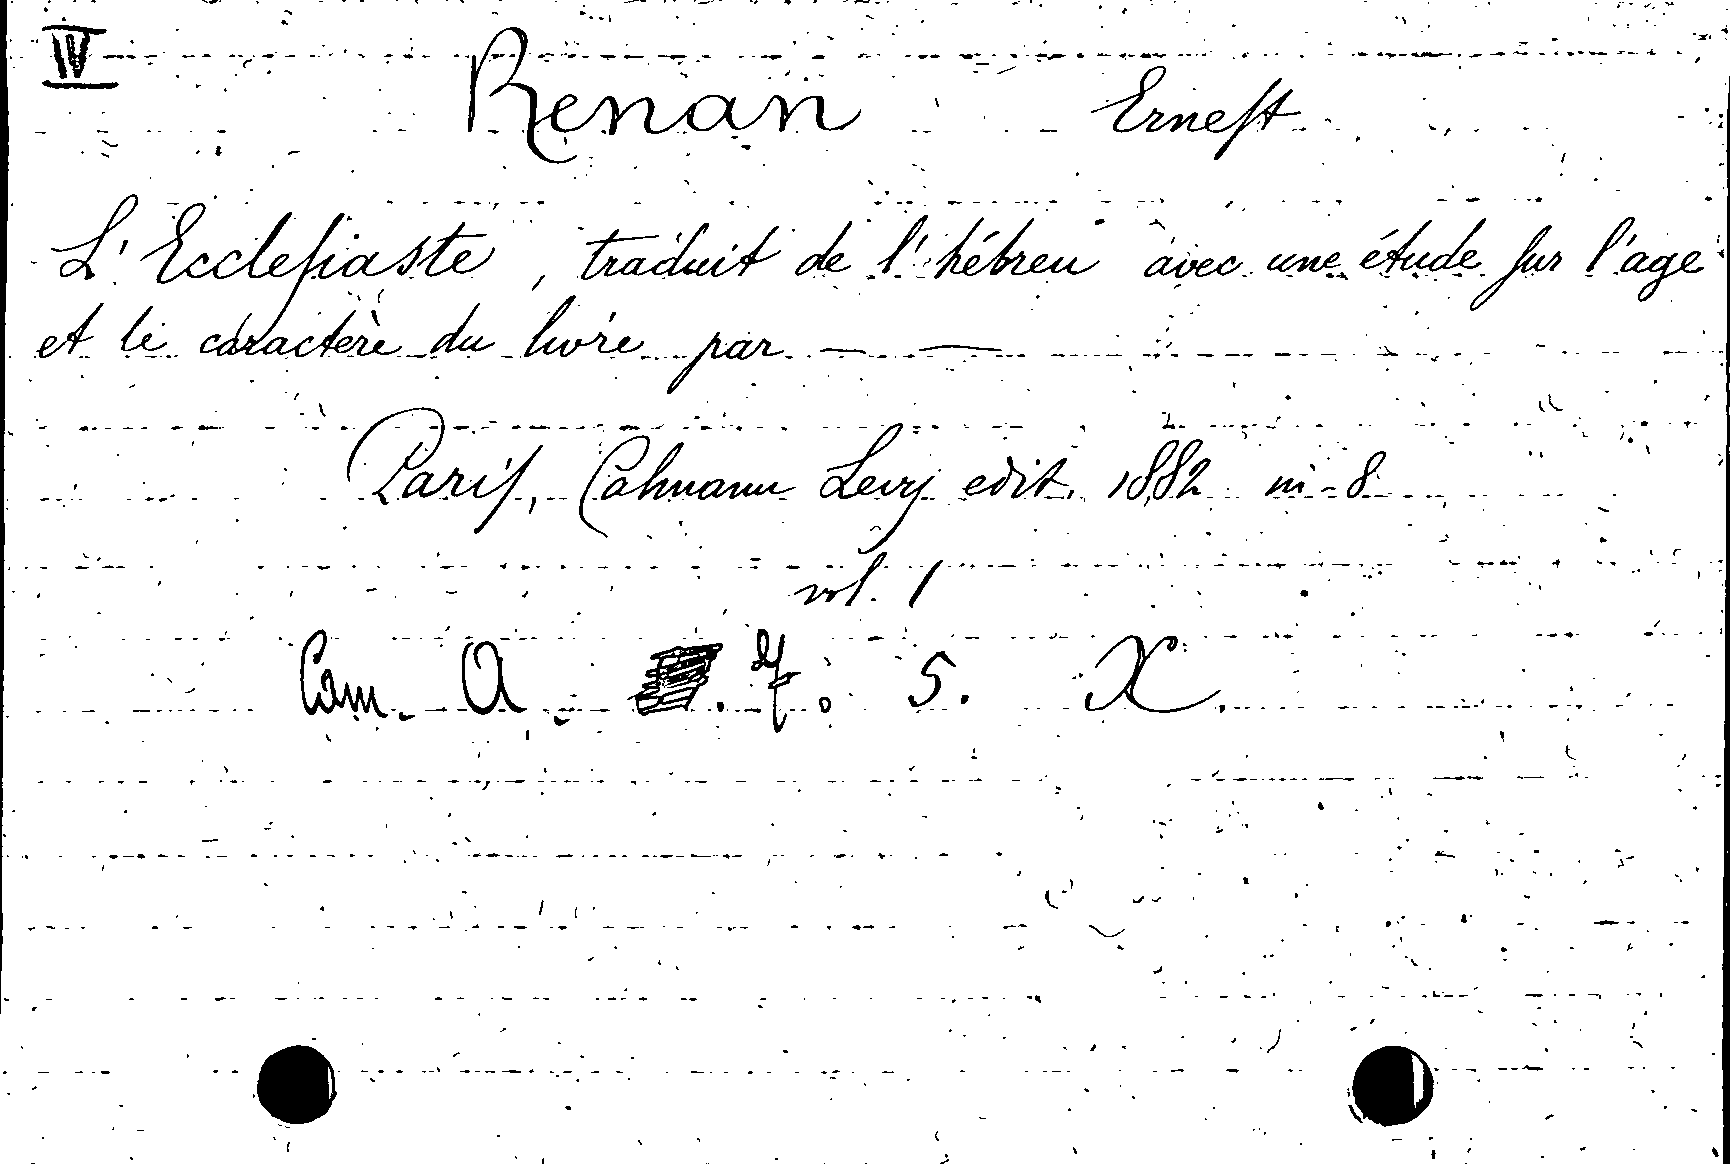 IV
Renan Ernest
L'Ecclesiaste, traduit de l'hébreu avec une étude sur l'age
et le caractère du livre par — —
Paris, Calmann Levy edit. 1882 in-8
vol. 1
Cam. A. 5. X.